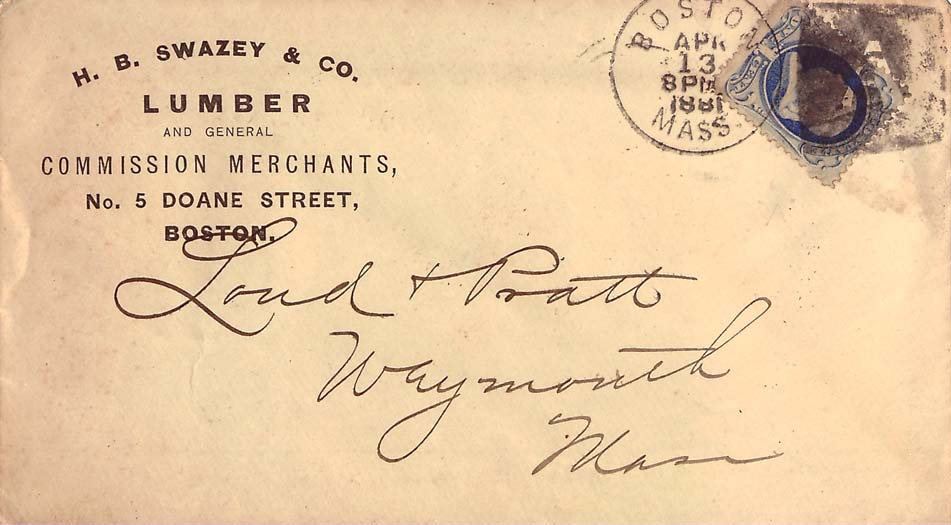 H. B. SWAZEY & CO.
LUMBER
AND GENERAL
COMMISSION MERCHANTS,
No. 5 DOANE STREET,
BOSTON.
BOSTON
APR
13
8PM
1881
MASS.
Loud & Pratt
Weymouth
Mass